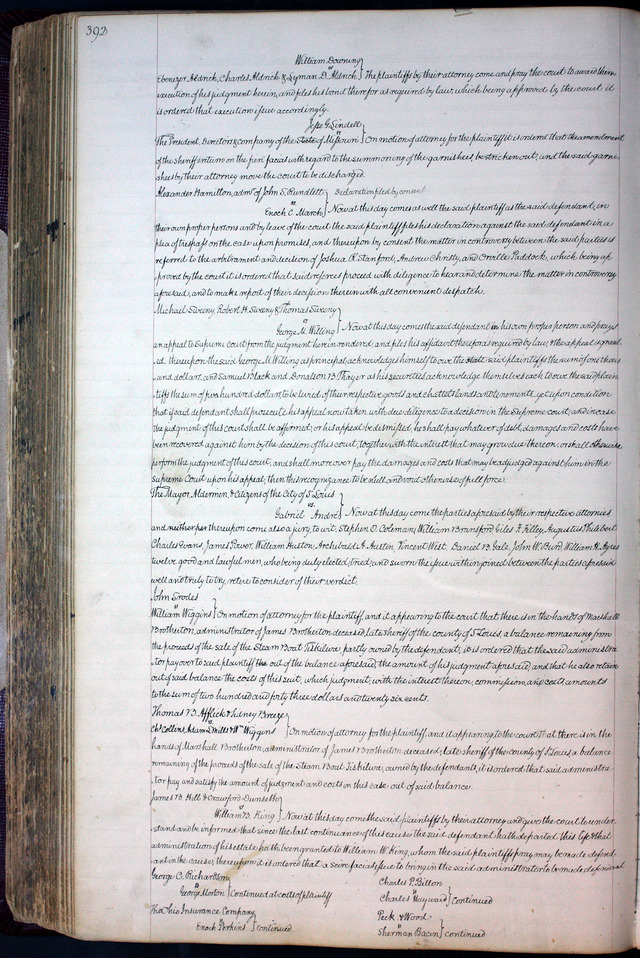 392
William Downing
vs
Ebenezer Aldrich, Charles Aldrich & Lyman D. Aldrich } The plaintiffs by their attorney come and pray the court to award them
execution of his judgment herein, and files his bond therefor as required by law, which being approved by the court it
is ordered that execution issue accordingly.
Jesse G. Lindell
vs
The President, Directors & Company of the State of Missouri } On motion of attorney for the plaintiff it is ordered that the amendment
of the sheriff's return on the fieri facias with regard to the summoning of the garnishees, be stricken out, and the said garni-
shees by their attorney move the court to be discharged.
Alexander Hamilton, admr. of John S. Rundlett } Declaration filed by consent
vs
Enoch C. March } Now at this day comes as well the said plaintiff as the said defendant, in
their own proper persons and by leave of the court the said plaintiff files his declaration against the said defendant in a
plea of trespass on the case upon promises, and thereupon by consent the matter in controversy between the said parties is
referred to the arbitrament and decision of Joshua R. Stanford, Andrew Christy, and Orville Paddock, which being ap-
proved by the court it is ordered that said referees proceed with diligence to hear and determine the matter in controversy
aforesaid, and to make report of their decision therein with all convenient despatch.
Michael Sweny, Robert H. Sweny & Thomas Sweny
vs
George M. Willing } Now at this day comes the said defendant in his own proper person and prays
an appeal to Supreme Court from the judgment herein rendered, and files his affidavit therefor as required by law, & the appeal is grant-
ed. thereupon the said George M. Willing as principal acknowledges himself to owe the state said plaintiffs the sum of one thous
and dollars, and Samuel Black and Donation B. Thayer as his securities acknowledge themselves each to owe the said plain
tiffs the sum of five hundred dollars, to be levied of their respective goods and chattels lands and tenements, yet upon condition
that if said defendant shall prosecute his appeal now taken with due diligence to a decision in the Supreme Court, and in case
the judgment of this court shall be affirmed, or his appeal be dismissed, he shall pay whatever of debt, damages and costs have
been recovered against him by the decision of this court, together with the interest that may grow due thereon, or shall otherwise
perform the judgment of this court, and shall moreover pay the damages and costs that may be adjudged against him in the
Supreme Court upon his appeal, then this recognizance to be null and void otherwise of full force.
The Mayor, Aldermen, & Citizens of the City of St Louis
vs.
Gabriel Andre } Now at this day come the parties aforesaid by their respective attornies
and thereupon come also a jury, to wit, Stephen O. Coleman, William Bransford, Giles F. Filley, Augustus Philibert
Charles Evans, James Power, William Huston, Archibald A. Austin, Vincent West, Daniel B. Gale, John W. Burd, William H. Ayres
twelve good and lawful men, who being duly elected, tried, and sworn the issue within joined between the parties aforesaid
well and truly to try, retire to consider of their verdict.
John Srodes
vs
William Wiggins } On motion of attorney for the plaintiff, and it appearing to the court that there is in the hands of Marshall
Brotherton, administrator of James Brotherton deceased, late sheriff of the county of St Louis, a balance remaining from
the proceeds of the sale of the Steam Boat Tiskilwa partly owned by the defendant, it is ordered that the said administra-
tor pay over to said plaintiff the out of the balance aforesaid the amount of his judgment aforesaid, and that he also retain
out of said balance the costs of this suit, which judgment, with the interest thereon, commissions, and costs, amounts
to the sum of two hundred and forty three dollars and twenty six cents.
Thomas B. Afflick & Sidney Breeze
vs
Chs Collins, Adam L. Mills & Wm Wiggins } On motion of attorney for the plaintiff, and it appearing to the court that there is in the
hands of Marshall Brotherton, administrator of James Brotherton deceased, late sheriff of the county of St Louis a balance
remaining of the proceeds of the sale of the Steam Boat Tiskilwa, owned by the defendants, it is ordered that said administra-
tor pay and satisfy the amount of judgment and costs in this case out of said balance.
James B. Hill & Crawford Dunseth
vs
William B. King } Now at this day come the said plaintiffs by their attorney and give the court to under
stand and be informed that since the last continuance of this cause the said defendant hath departed this life & that
administration of his estate hath been granted to William W. King, whom the said plaintiffs pray may be made defend
ant in the cause, thereupon it is ordered that a scire facias issue to bring in the said administrator to be made defendant
George C. Richardson
vs
George Morton } Continued at costs of plaintiff
Charles P. Billon
vs
Charles Hayward } Continued
The Ohio Insurance Company
vs
Enoch Perkins } continued
Peck & Wood
vs
Sherman Bacon } continued